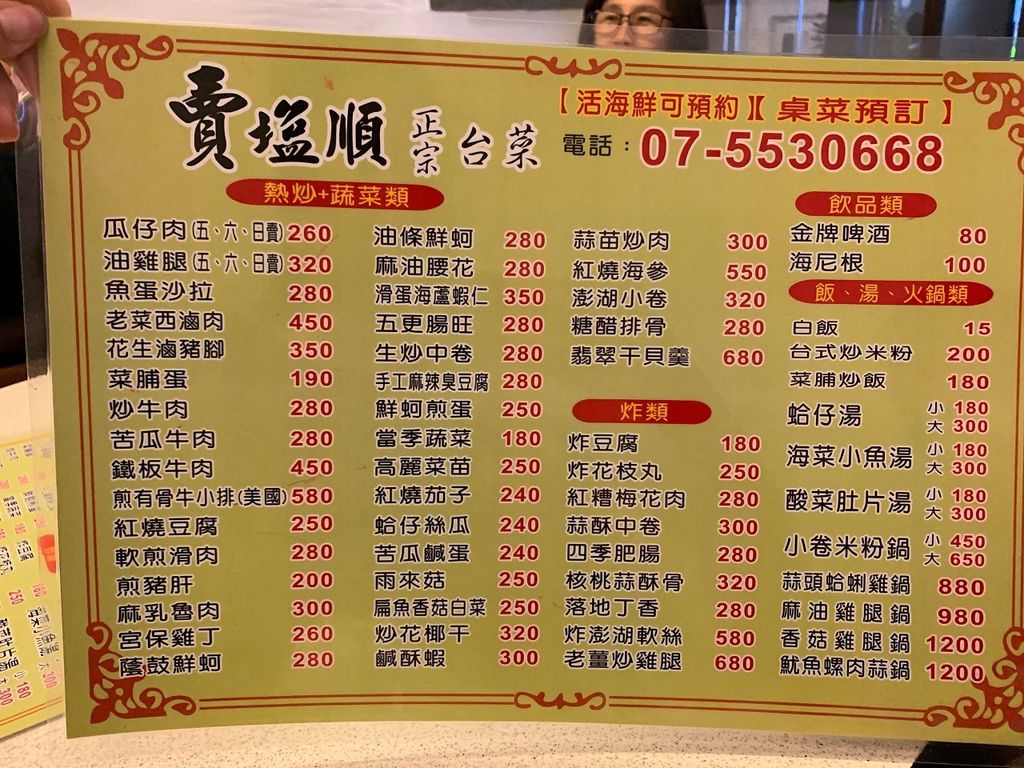 賣塩順 正宗 台菜
【活海鮮可預約】【桌菜預訂】
電話：07-5530668
熱炒+蔬菜類
瓜仔肉(五、六、日賣) 260
油雞腿(五、六、日賣) 320
魚蛋沙拉 280
老菜西滷肉 450
花生滷豬腳 350
菜脯蛋 190
炒牛肉 280
苦瓜牛肉 280
鐵板牛肉 450
煎有骨牛小排(美國) 580
紅燒豆腐 250
軟煎滑肉 280
煎豬肝 200
麻乳魯肉 300
宮保雞丁 260
蔭鼓鮮蚵 280
油條鮮蚵 280
麻油腰花 280
滑蛋海蘆蝦仁 350
五更腸旺 280
生炒中卷 280
手工麻辣臭豆腐 280
鮮蚵煎蛋 250
當季蔬菜 180
高麗菜苗 250
紅燒茄子 240
蛤仔絲瓜 240
苦瓜鹹蛋 240
雨來菇 250
扁魚香菇白菜 250
炒花椰干 320
鹹酥蝦 300
蒜苗炒肉 300
紅燒海參 550
澎湖小卷 320
糖醋排骨 280
翡翠干貝羹 680
炸類
炸豆腐 180
炸花枝丸 250
紅糟梅花肉 280
蒜酥中卷 300
四季肥腸 280
核桃蒜酥骨 320
落地丁香 280
炸澎湖軟絲 580
老薑炒雞腿 680
飲品類
金牌啤酒 80
海尼根 100
飯、湯、火鍋類
白飯 15
台式炒米粉 200
菜脯炒飯 180
蛤仔湯 小 180 大 300
海菜小魚湯 小 180 大 300
酸菜肚片湯 小 180 大 300
小卷米粉鍋 小 450 大 650
蒜頭蛤蜊雞鍋 880
麻油雞腿鍋 980
香菇雞腿鍋 1200
魷魚螺肉蒜鍋 1200